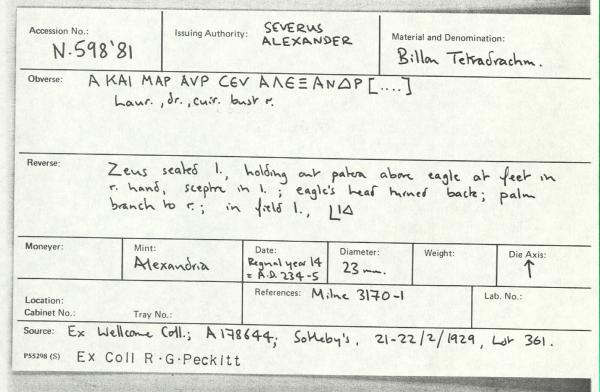 Accession No.: N.598'81
Issuing Authority: SEVERUS
ALEXANDER
Material and Denomination:
Billon Tetradrachm.
Obverse: A KAI MAP AVP CЄV AΛЄΞANΔP [....]
Laur., dr., cuir. bust r.
Reverse: Zeus seated l., holding out patera above eagle at feet in
r. hand, sceptre in l.; eagle's head turned back; palm
branch to r.; in field l., LIΔ
Moneyer:
Mint: Alexandria
Date: Regnal year 14
= A.D. 234-5
Diameter: 23 mm.
Weight:
Die Axis: ↑
Location:
Cabinet No.: Tray No.:
References: Milne 3170-1
Lab. No.:
Source: Ex Wellcome Coll.; A178644; Sotheby's, 21-22/2/1929, Lot 361.
P55298 (S) Ex Coll R.G.Peckitt